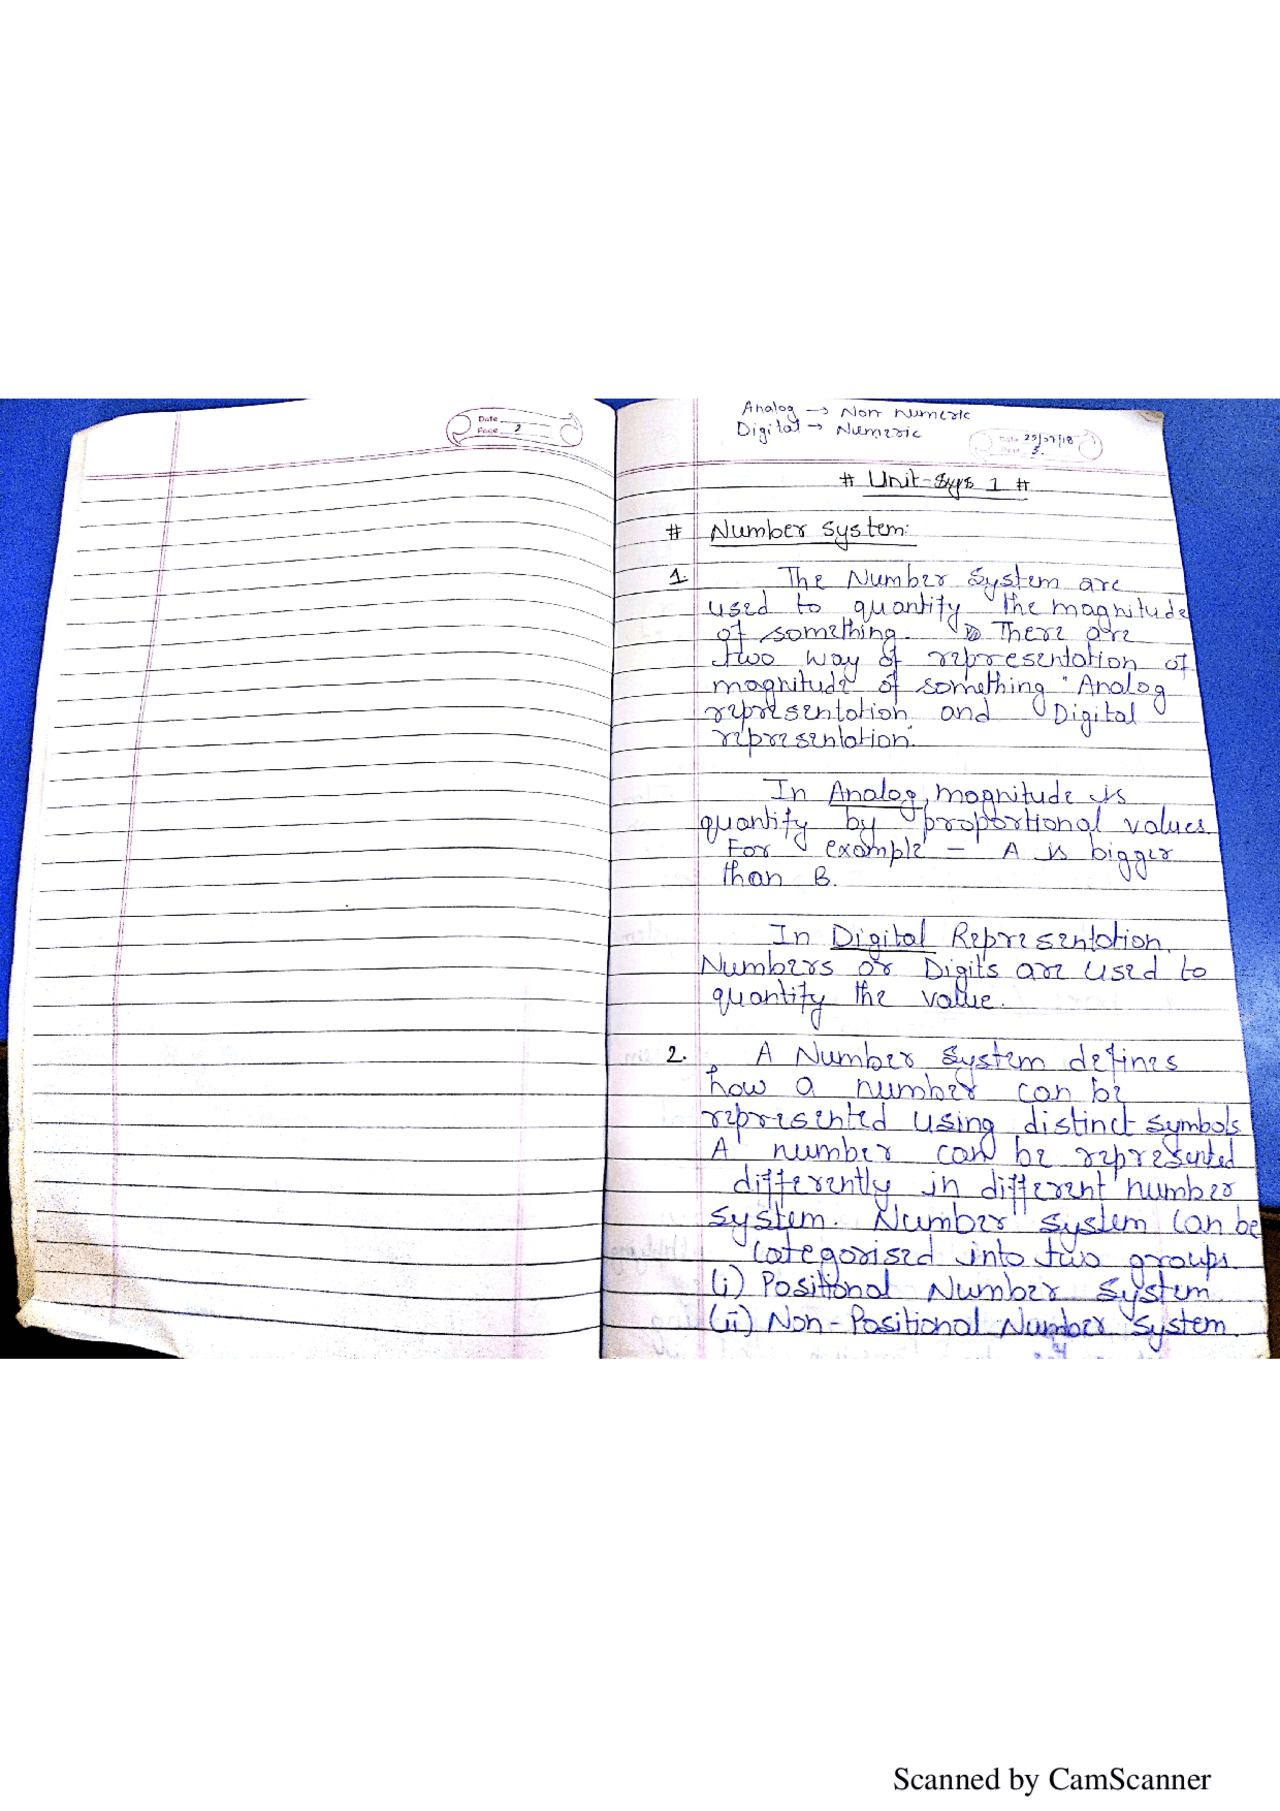 Date
Page 2
Analog → Non Numeric
Digital → Numeric
Date 25/07/18
3.
# Unit-Sys 1 #
# Number System:
1. The Number System are
used to quantify the magnitude
of something. There are
two way of representation of
magnitude of something "Analog
representation and Digital
representation."
In Analog, magnitude is
quantify by proportional values.
For example - A is bigger
than B.
In Digital Representation,
Numbers or Digits are used to
quantify the value.
2. A Number System defines
how a number can be
represented using distinct symbols.
A number can be represented
differently in different number
system. Number system can be
categorised into two groups.
(i) Positional Number System
(ii) Non-Positional Number System.
Scanned by CamScanner